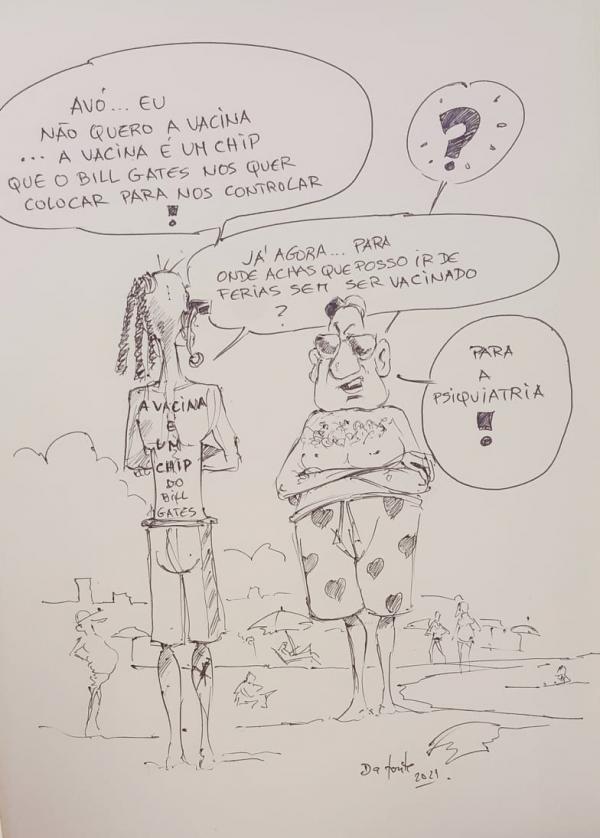 AVÓ... EU
NÃO QUERO A VACINA
... A VACINA É UM CHIP
QUE O BILL GATES NOS QUER
COLOCAR PARA NOS CONTROLAR
!
?
JÁ AGORA... PARA
ONDE ACHAS QUE POSSO IR DE
FERIAS SEM SER VACINADO
?
PARA
A
PSIQUIATRIA
!
A VACINA
E
UM
CHIP
DO
BILL
GATES
2021.